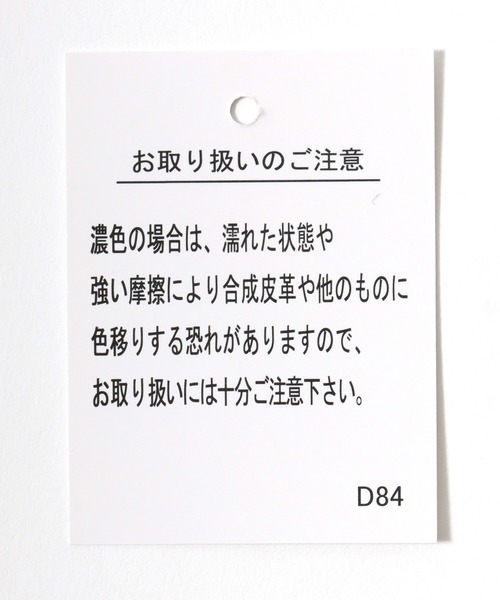 お取り扱いのご注意
濃色の場合は、濡れた状態や
強い摩擦により合成皮革や他のものに
色移りする恐れがありますので、
お取り扱いには十分ご注意下さい。
D84